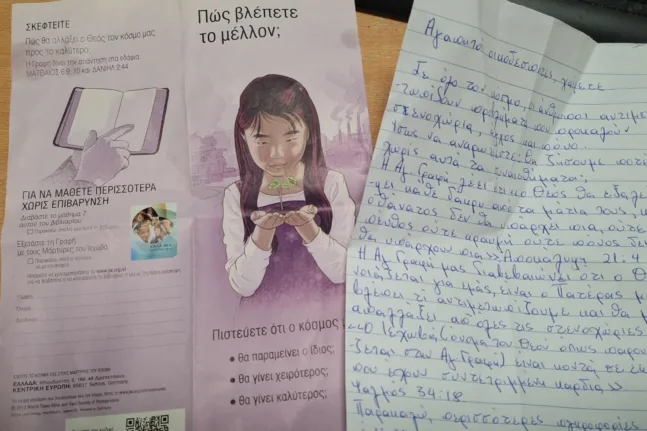 ΣΚΕΦΤΕΙΤΕ
Πώς θα αλλάξει ο Θεός τον κόσμο μας
προς το καλύτερο;
Η Γραφή δίνει την απάντηση στα εδάφια
ΜΑΤΘΑΙΟΣ 6:9, 10 και ΔΑΝΙΗΛ 2:44
ΓΙΑ ΝΑ ΜΑΘΕΤΕ ΠΕΡΙΣΣΟΤΕΡΑ
ΧΩΡΙΣ ΕΠΙΒΑΡΥΝΣΗ
Διαβάστε το μάθημα 7
αυτού του βιβλιαρίου
Εξετάστε τη Γραφή
με τους Μάρτυρες του Ιεχωβά
ΕΛΛΑΔΑ:
ΚΕΝΤΡΙΚΗ ΕΥΡΩΠΗ: 65617 Selters, Germany
Πώς βλέπετε
το μέλλον;
Πιστεύετε ότι ο κόσμος
• θα παραμείνει ο ίδιος;
• θα γίνει χειρότερος;
• θα γίνει καλύτερος;
Αγαπητέ οικοδεσπότη, χαίρετε
Σε όλο τον κόσμο, οι άνθρωποι αντιμε
τωπίζουν πράγματα που προκαλούν
στενοχώρια, άγχος και πόνο.
Ίσως να αναρωτιέστε: θα ζήσουμε ποτέ
χωρίς αυτά τα συναισθήματα;
Η Αγ. Γραφή λέει ότι ο Θεός θα εξαλε
ψει κάθε δάκρυ από τα μάτια τους, κ
ο θάνατος δεν θα υπάρχει πια, ούτε
πένθος ούτε κραυγή ούτε πόνος δεν
θα υπάρχουν πια» Αποκάλυψη 21:4
Η Αγ Γραφή μας διαβεβαιώνει ότι ο Θ
νοιάζεται για εμάς, είναι ο Πατέρας μ
βλέπει τι αντιμετωπίζουμε και θα μ
απαλλάξει από όλες τις στενοχώριες
«Ο Ιεχωβά (όνομα του Θεού όπως παρου
ζεται στην Αγ Γραφή) είναι κοντά σε εκ
που έχουν συντετριμμένη καρδιά»
Ψαλμος 34:18
Παρακαλώ, περισσότερες πληροφορίες